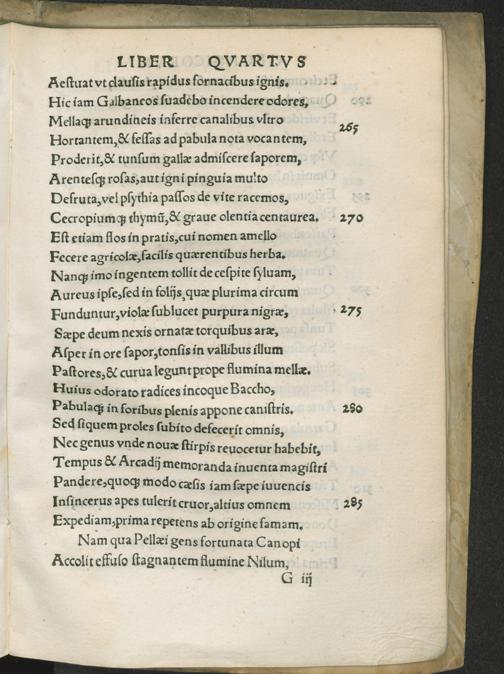 LIBER QVARTVS
Aestuat vt clausis rapidus fornacibus ignis.
Hic iam Galbaneos suadebo incendere odores,
Mellaq; arundineis inferre canalibus vltro 265
Hortantem, & fessas ad pabula nota vocantem,
Proderit, & tunsum gallæ admiscere saporem,
Arentesq; rosas, aut igni pinguia multo
Defruta, vel psythia passos de vite racemos,
Cecropiumq; thymũ, & graue olentia centaurea. 270
Est etiam flos in pratis, cui nomen amello
Fecere agricolæ, facilis quærentibus herba.
Nanq; imo ingentem tollit de cespite syluam,
Aureus ipse, sed in folijs, quæ plurima circum
Funduntur, violæ sublucet purpura nigræ, 275
Sæpe deum nexis ornatæ torquibus aræ,
Asper in ore sapor, tonsis in vallibus illum
Pastores, & curua legunt prope flumina mellæ.
Huius odorato radices incoque Baccho,
Pabulaq; in foribus plenis appone canistris. 280
Sed siquem proles subito defecerit omnis,
Nec genus vnde nouæ stirpis reuocetur habebit,
Tempus & Arcadij memoranda inuenta magistri
Pandere, quoq; modo cæsis iam sæpe iuuencis
Insincerus apes tulerit cruor, altius omnem 285
Expediam, prima repetens ab origine famam.
Nam qua Pellæi gens fortunata Canopi
Accolit effuso stagnantem flumine Nilum,
G iij